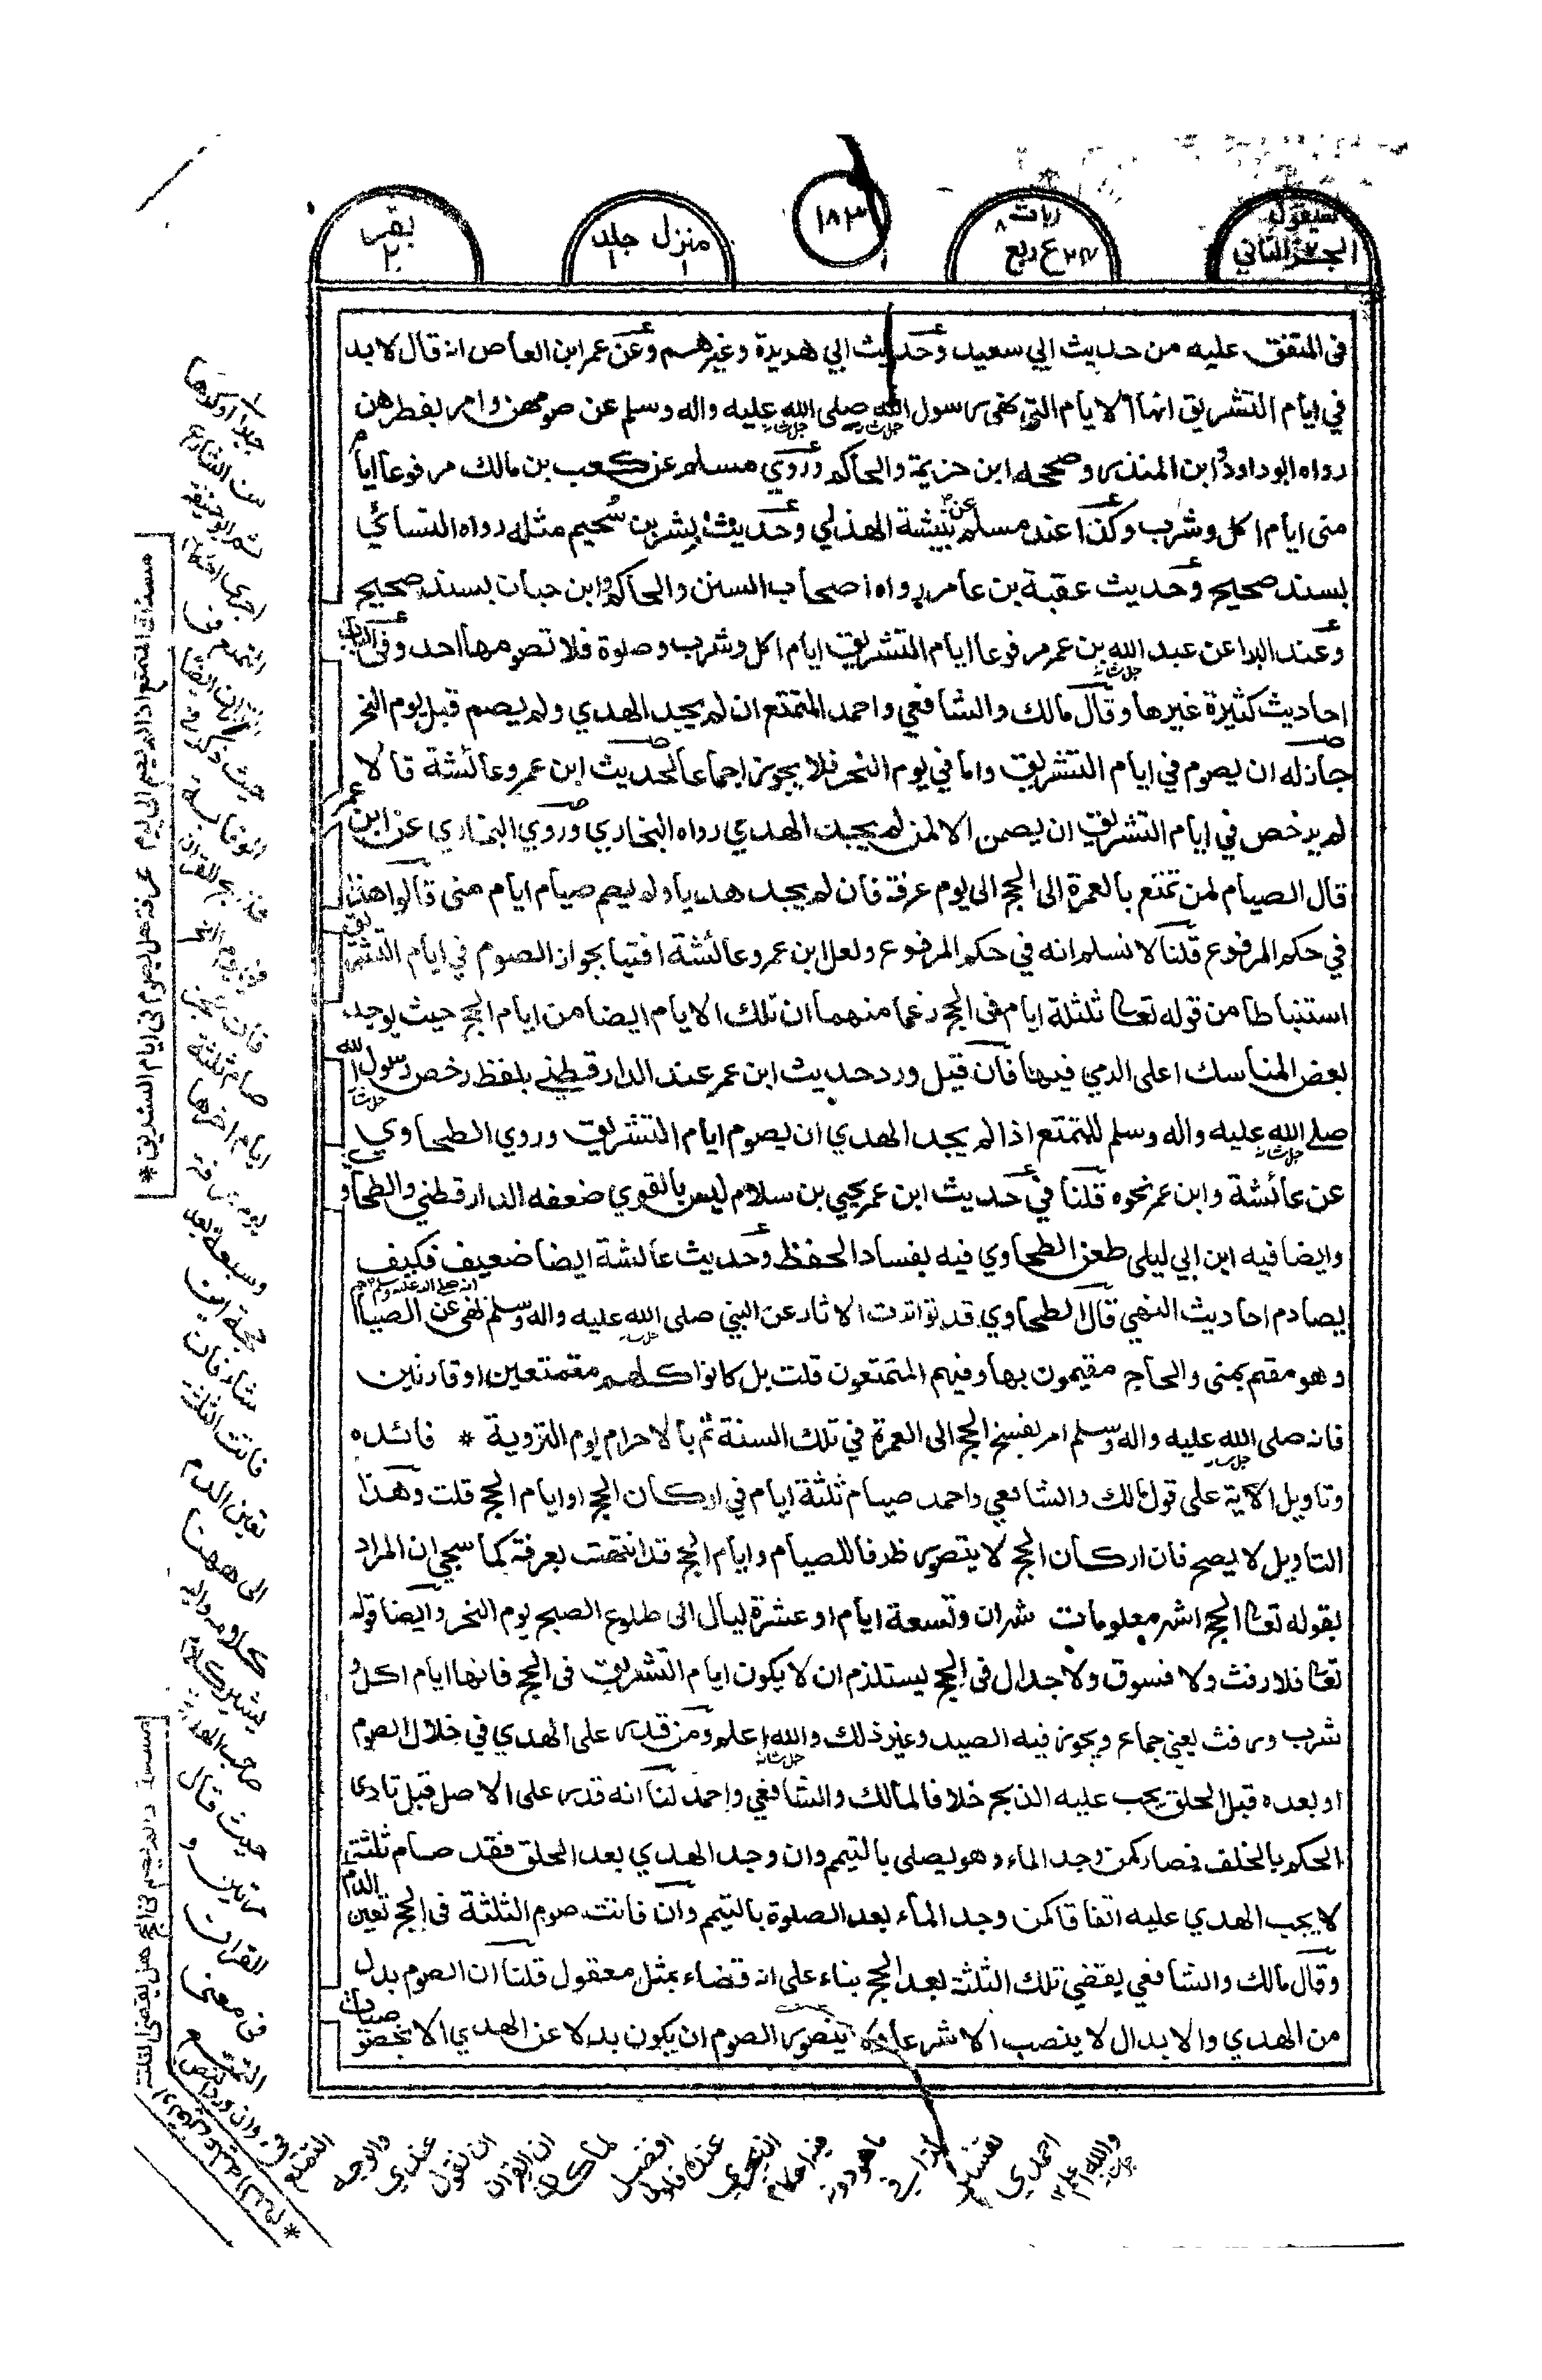 سيقول
الجزء الثاني
ربات ٨
ع ربع
١٨٣
منزل جلد
١ ١
بقر
٢
فى المتفق عليه من حديث ابي سعيد وحديث ابي هريرة وغيرهم وعن عمر ابن العاص انه قال لابد
في ايام التشريق انها الايام التي نهى رسول الله صلى الله عليه واله وسلم عن صومهن وامر بفطرهن
رواه ابو داود وابن المنذر وصححه ابن خزيمة والحاكم وروي مسلم عن كعب بن مالك مرفوعا ايام
منى ايام اكل وشرب وكذا عند مسلم عن نبيشة الهذلي وحديث بشر بن سُحيم مثله رواه النسائي
بسند صحيح وحديث عقبة بن عامر رواه اصحاب السنن والحاكم وابن حبان بسند صحيح
وعند البزا عن عبد الله بن عمر مرفوعا ايام التشريق ايام اكل وشرب وصلوة فلا تصومها احد وفى الباب
احاديث كثيرة غيرها وقال مالك والشافعي واحمد المتمتع ان لم يجد الهدي ولم يصم قبل يوم النحر
جاز له ان يصوم في ايام التشريق واما في يوم النحر فلا يجوز اجماعا لحديث ابن عمر وعائشة قالا
لم يرخص في ايام التشريق ان يصمن الا لمن لم يجد الهدي رواه البخاري وروي البخاري عن ابن عمر
قال الصيام لمن تمتع بالعمرة الى الحج الى يوم عرفة فان لم يجد هديا ولم يصم صيام ايام منى قالوا هذا
في حكم المرفوع قلنا لا نسلم انه في حكم المرفوع ولعل ابن عمر وعائشة افتيا بجواز الصوم في ايام التشريق
استنباطا من قوله تعالى ثلثة ايام فى الحج زعما منهما ان تلك الايام ايضا من ايام الحج حيث يوجد
بعض المناسك اعلى الرمي فيها فان قيل ورد حديث ابن عمر عند الدارقطني بلفظ رخص رسول الله
صلى الله عليه واله وسلم للمتمتع اذا لم يجد الهدي ان يصوم ايام التشريق وروي الطحاوي
عن عائشة وابن عمر نحوه قلنا في حديث ابن عمر يحيي بن سلام ليس بالقوي ضعفه الدارقطني والطحاوي
وايضا فيه ابن ابي ليلى طعن الطحاوي فيه بفساد الحفظ وحديث عائشة ايضا ضعيف فكيف
يصادم احاديث النهي قال الطحاوي قد تواترت الاثار عن النبي صلى الله عليه واله وسلم نهى عن الصيام
وهو مقيم بمنى والحاج مقيمون بها وفيهم المتمتعون قلت بل كانوا كلهم متمتعين او قارنين
فانه صلى الله عليه واله وسلم امر بفسخ الحج الى العمرة في تلك السنة ثم بالاحرام يوم التروية * فائده
وتاويل الآية على قول مالك والشافعي واحمد صيام ثلثة ايام في اركان الحج او ايام الحج قلت وهذا
التاويل لا يصح فان اركان الحج لا يتصور ظرفا للصيام وايام الحج قد انتهت بعرفة كما سجي ان المراد
بقوله تعالى الحج اشهر معلومات شهران وتسعة ايام او عشرة ليال الى طلوع الصبح يوم النحر وايضا قوله
تعالى فلا رفث ولا فسوق ولا جدال فى الحج يستلزم ان لا يكون ايام التشريق فى الحج فانها ايام اكل و
شرب ورفث يعني جماع ويجوز فيه الصيد وغير ذلك والله اعلم ومن قدر على الهدي في خلال الصوم
او بعده قبل الحلق يجب عليه الذبح خلافا لمالك والشافعي واحمد لنا انه قدر على الاصل قبل تادى
الحكم بالخلف فصار كمن وجد الماء وهو يصلى بالتيمم وان وجد الهدي بعد الحلق فقد صام ثلثة
لا يجب الهدي عليه اتفاقا كمن وجد الماء بعد الصلوة بالتيمم وان فاتت صوم الثلثة فى الحج تعين الدم
وقال مالك والشافعي يقضي تلك الثلثة بعد الحج بناء على انه قضاء بمثل معقول قلنا ان الصوم بدل
من الهدي والابدال لا ينصب الا شرعا يتصور الصوم ان يكون بدلا عن الهدي الا بخصوصيات
مسئلة المتمتع اذا لم يصم الى يوم عرفة هل يصوم فى ايام التشريق *
فان
صام ثلثة
ايام اخرها
يوم عرفة
وسبعة بعد
حجة اين
شاء فان
فاتت الثلثة
تعين الدم
الى ههنا
كلامه واليه
يشير كلام
صاحب الهداية
حيث قال
القران
فى معنى
التمتع
والوجه
عندي
ان نقول
ان القران
لما كان
افضل
عندنا
احمدي
والله اعلم ١٢